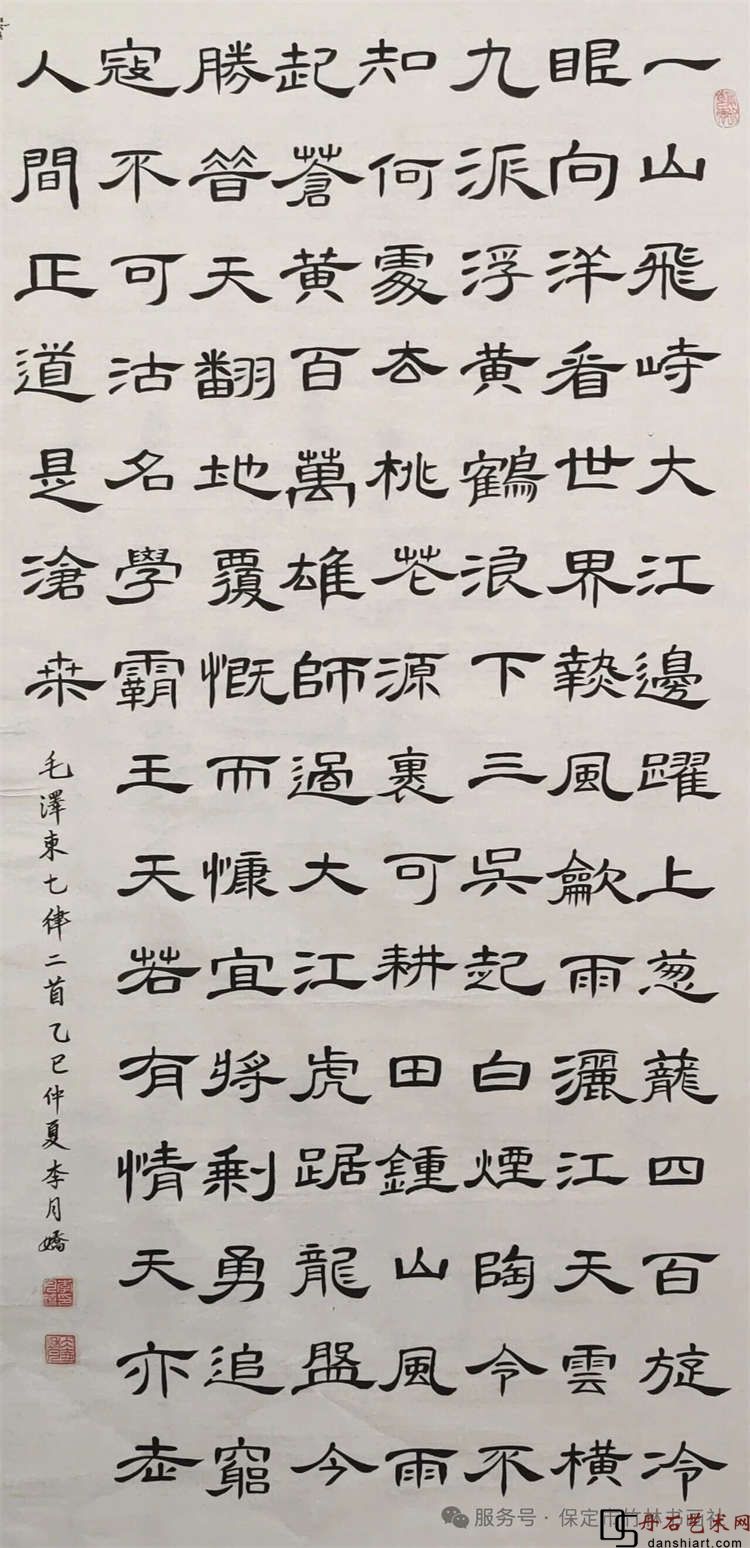 一山飛峙大江邊躍上葱蘢四百旋冷
眼向洋看世界熱風龡雨灑江天雲橫
九派浮黄鶴浪下三吳起白煙陶令不
知何處去桃花源裏可耕田鍾山風雨
起蒼黄百萬雄師過大江虎踞龍盤今
勝昔天翻地覆慨而慷宜將剩勇追窮
寇不可沽名學霸王天若有情天亦老
人間正道是滄桑
毛澤東七律二首乙巳仲夏李月嬌
服务号·保定市竹林书画社
丹石艺术网
danshiart.com